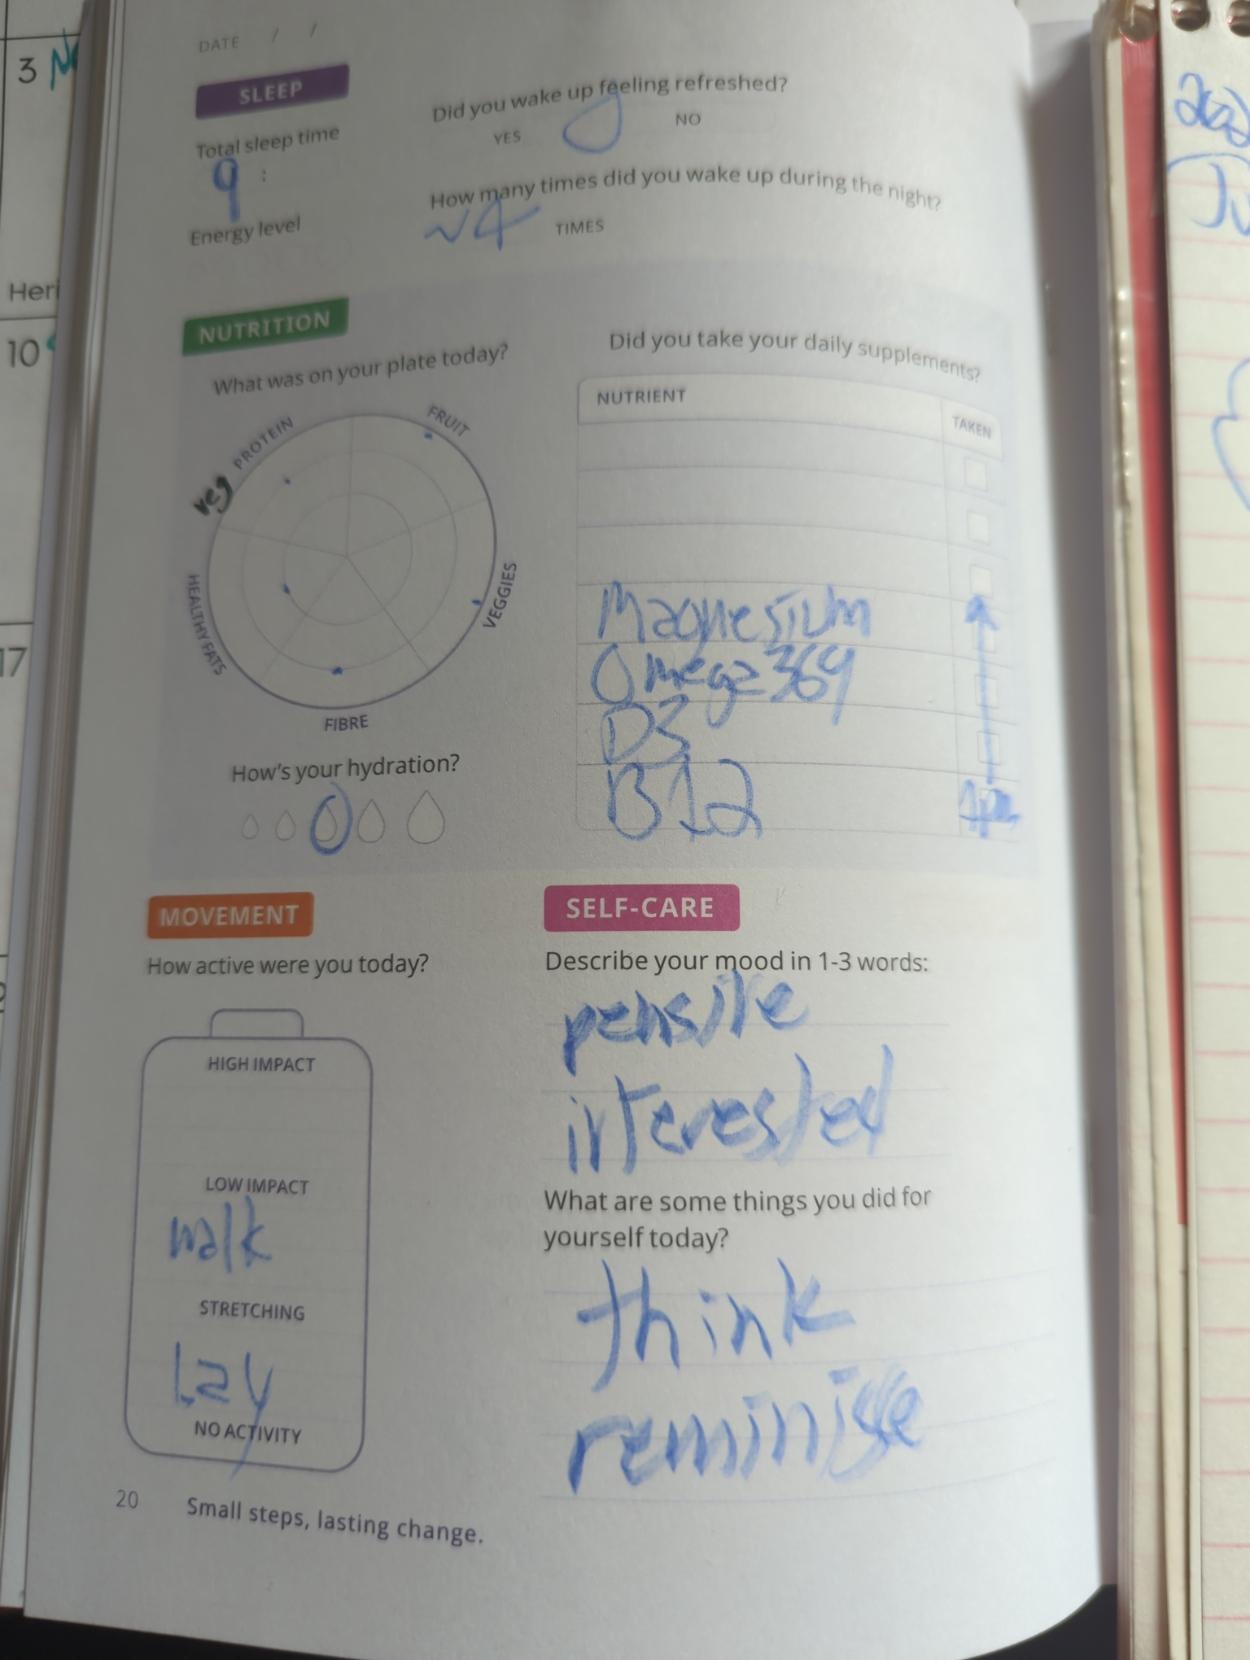 DATE / /
SLEEP
Total sleep time
9 :
Energy level
Did you wake up feeling refreshed?
YES NO
How many times did you wake up during the night?
~4 TIMES
NUTRITION
What was on your plate today?
veg PROTEIN
FRUIT
VEGGIES
FIBRE
HEALTHY FATS
How's your hydration?
Did you take your daily supplements?
NUTRIENT TAKEN
Magnesium
Omega 369
D3
B12
MOVEMENT
How active were you today?
HIGH IMPACT
LOW IMPACT
walk
STRETCHING
Lay
NO ACTIVITY
SELF-CARE
Describe your mood in 1-3 words:
pensive
interested
What are some things you did for
yourself today?
think
reminisce
20 Small steps, lasting change.
3
Heri
10
17